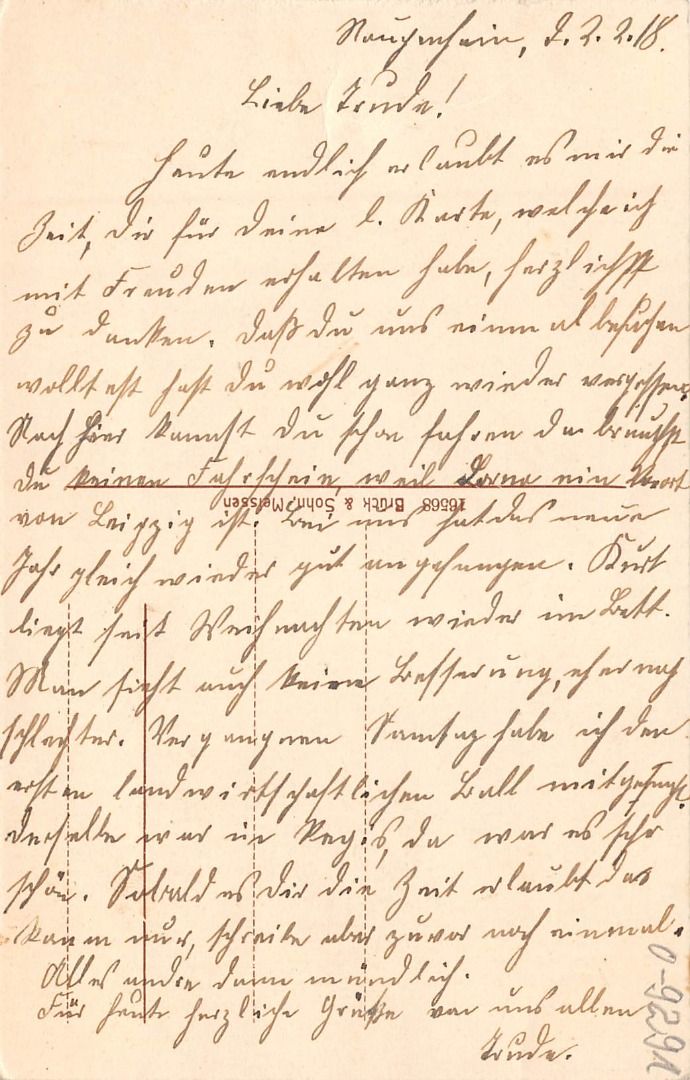 Raupenhain, d. 2.2.18.
Liebe Trude!
Heute endlich erlaubt es mir die
Zeit, dir für deine l. Karte, welche ich
mit Freuden erhalten habe, herzlichst
zu danken. Daß du uns einmal besuchen
wolltest hast du wohl ganz wieder vergessen.
Nach hier kannst du schon fahren da brauchst
du keinen Fahrschein, weil Borna ein Vorort
16568 Brück & Sohn, Meissen
von Leipzig ist. Bei uns hat das neue
Jahr gleich wieder gut angefangen. Kurt
liegt seit Weihnachten wieder im Bett.
Man sieht auch keine Besserung, eher noch
schlechter. Vergangnen Samstag habe ich den
ersten landwirtschaftlichen Ball mitgefeiert.
derselbe war in Regis, da war es sehr
schön. Sobald es Dir die Zeit erlaubt das
kann nur, schreibe aber zuvor noch einmal.
Alles andre dann mündlich.
Für heute herzliche Grüße von uns allen
Trude.
0-9291